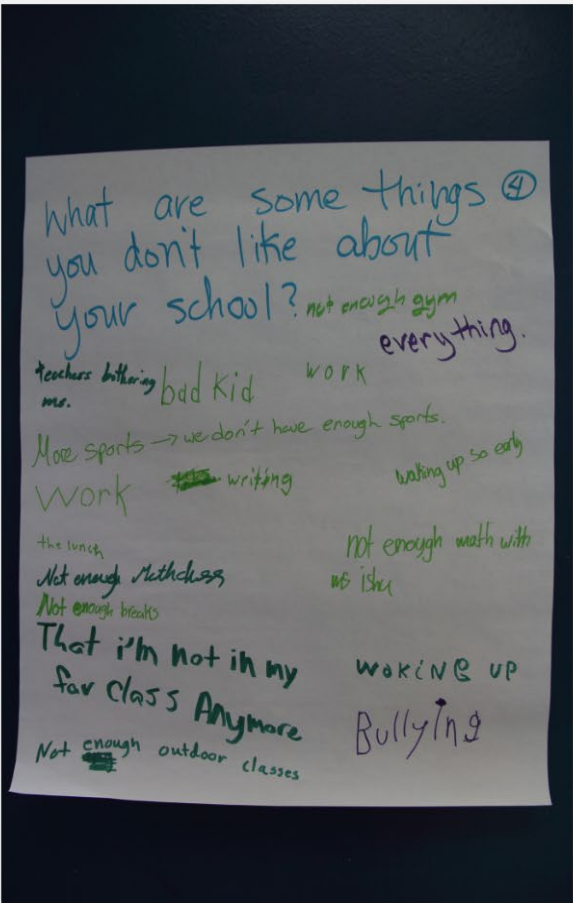 What are some things 4
you don't like about
your school? not enough gym
everything.
teachers bothering
me.
bad kid
work
More sports → we don't have enough sports.
Work
writing
waking up so early
the lunch
not enough math with
ms ishu
Not enough Mathclass
Not enough breaks
That i'm not in my
fav class Anymore
waking up
Bullying
Not enough outdoor classes